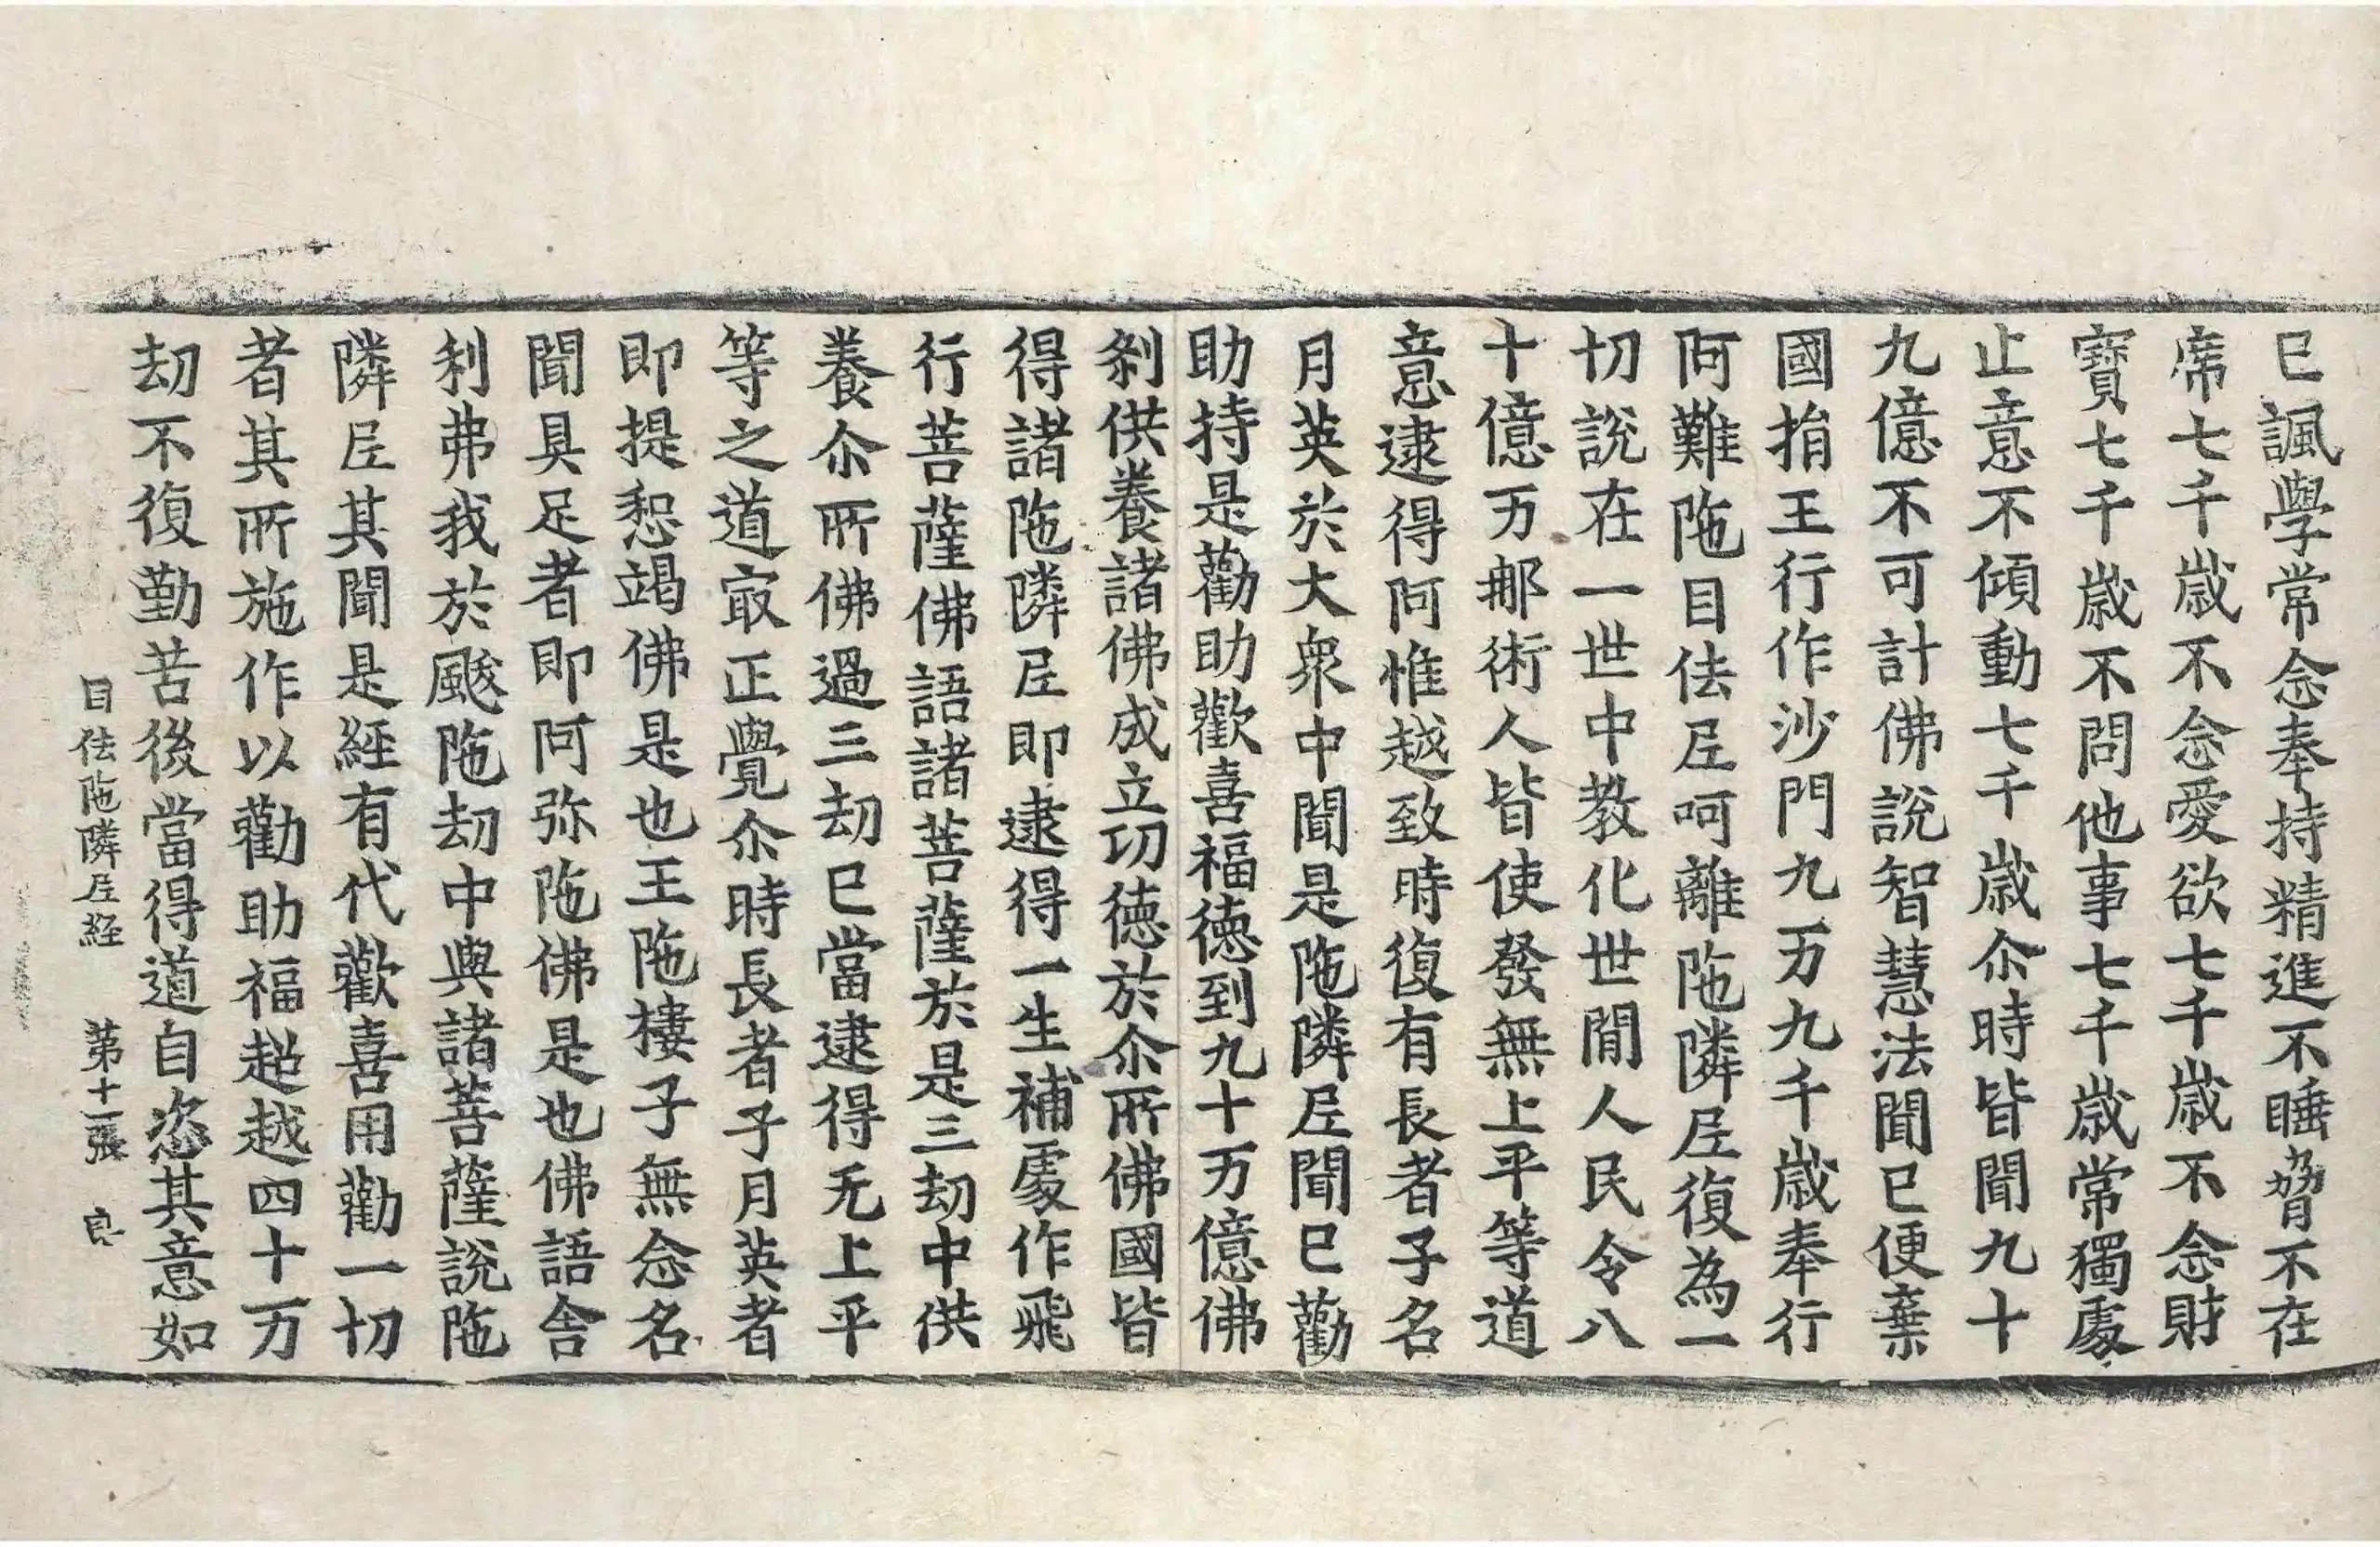 已諷學常念奉持精進不睡脅不在
席七千歲不念愛欲七千歲不念財
寶七千歲不問他事七千歲常獨處
止意不傾動七千歲尒時皆聞九十
九億不可計佛說智慧法聞已便棄
國捐王行作沙門九万九千歲奉行
阿難陁目佉𡰱呵離陁隣𡰱復為一
切說在一世中教化世閒人民令八
十億万郍術人皆使發無上平等道
意逮得阿惟越致時復有長者子名
月英於大衆中聞是陁隣𡰱聞已勸
助持是勸助歡喜福德到九十万億佛
剎供養諸佛成立功德於尒所佛國皆
得諸陁隣𡰱即逮得一生補處作飛
行菩薩佛語諸菩薩於是三劫中供
養尒所佛過三劫已當逮得无上平
等之道㝡正覺尒時長者子月英者
即提惒竭佛是也王陁樓子無念名
聞具足者即阿弥陁佛是也佛語舍
利弗我於颰陁劫中與諸菩薩說陁
隣𡰱其聞是經有代歡喜用勸一切
者其所施作以勸助福超越四十万
劫不復勤苦後當得道自恣其意如
目佉陁隣𡰱經 第十一張 良